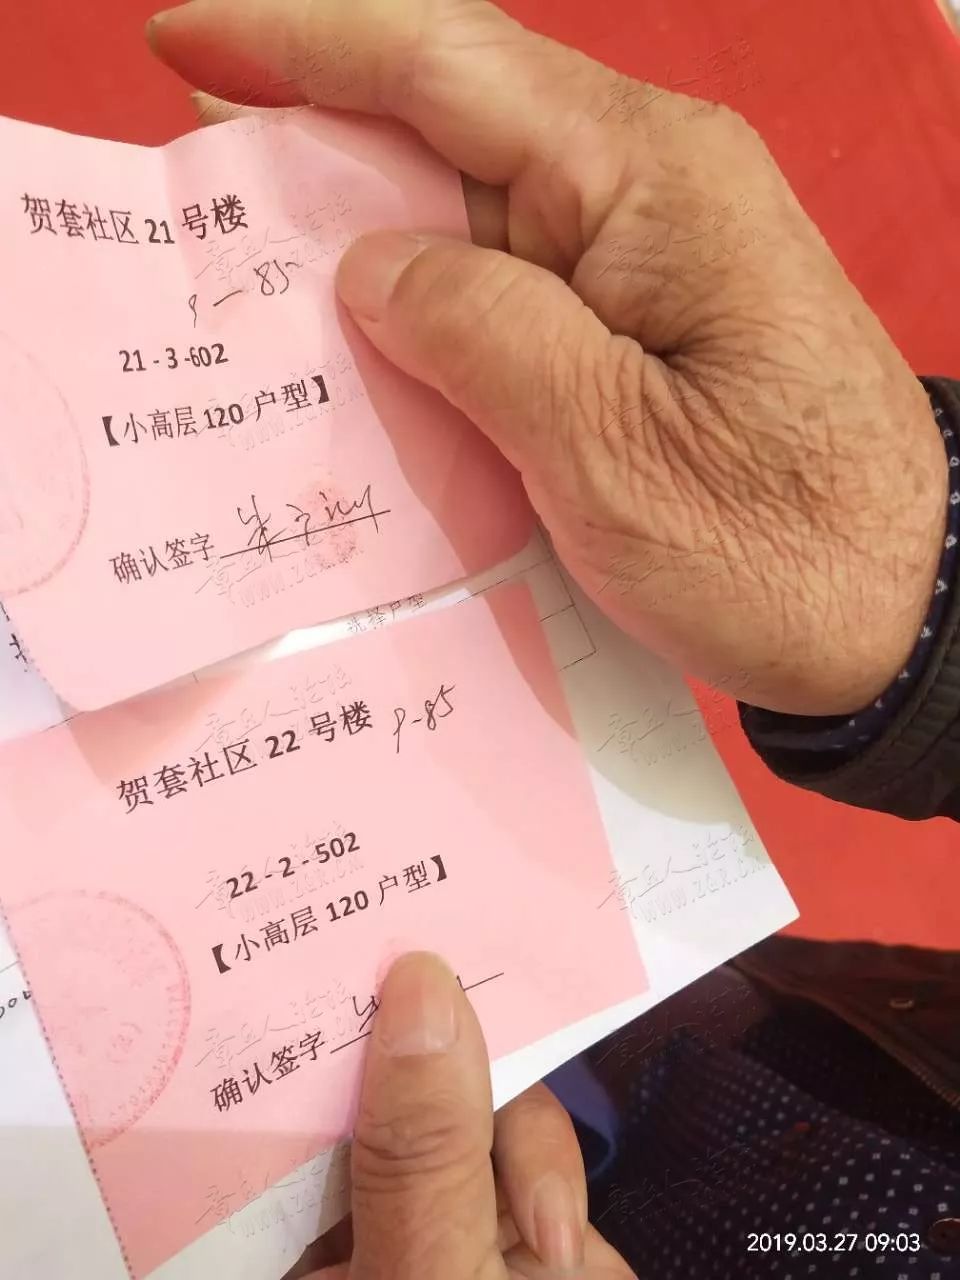 贺套社区 21 号楼
9-85
21-3-602
【小高层 120 户型】
确认签字
选择户型
贺套社区 22 号楼 9-85
22-2-502
【小高层 120 户型】
确认签字
章丘人论坛
www.ZQR.CN
2019.03.27 09:03